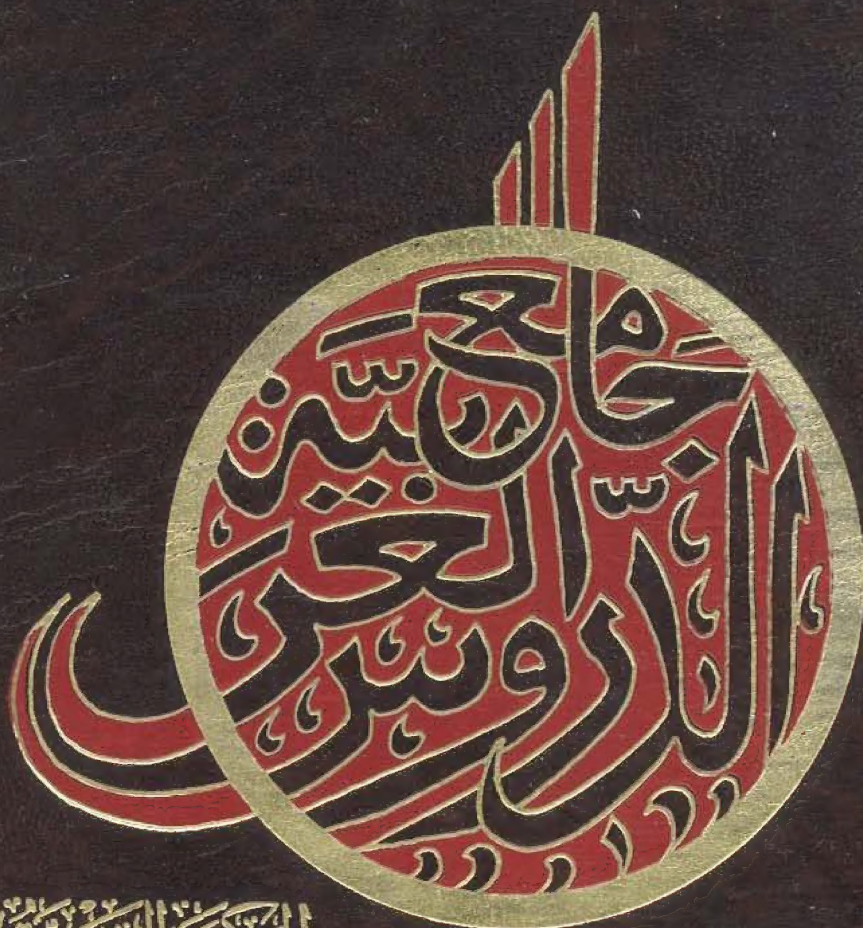 جامع
الدروس
العربية